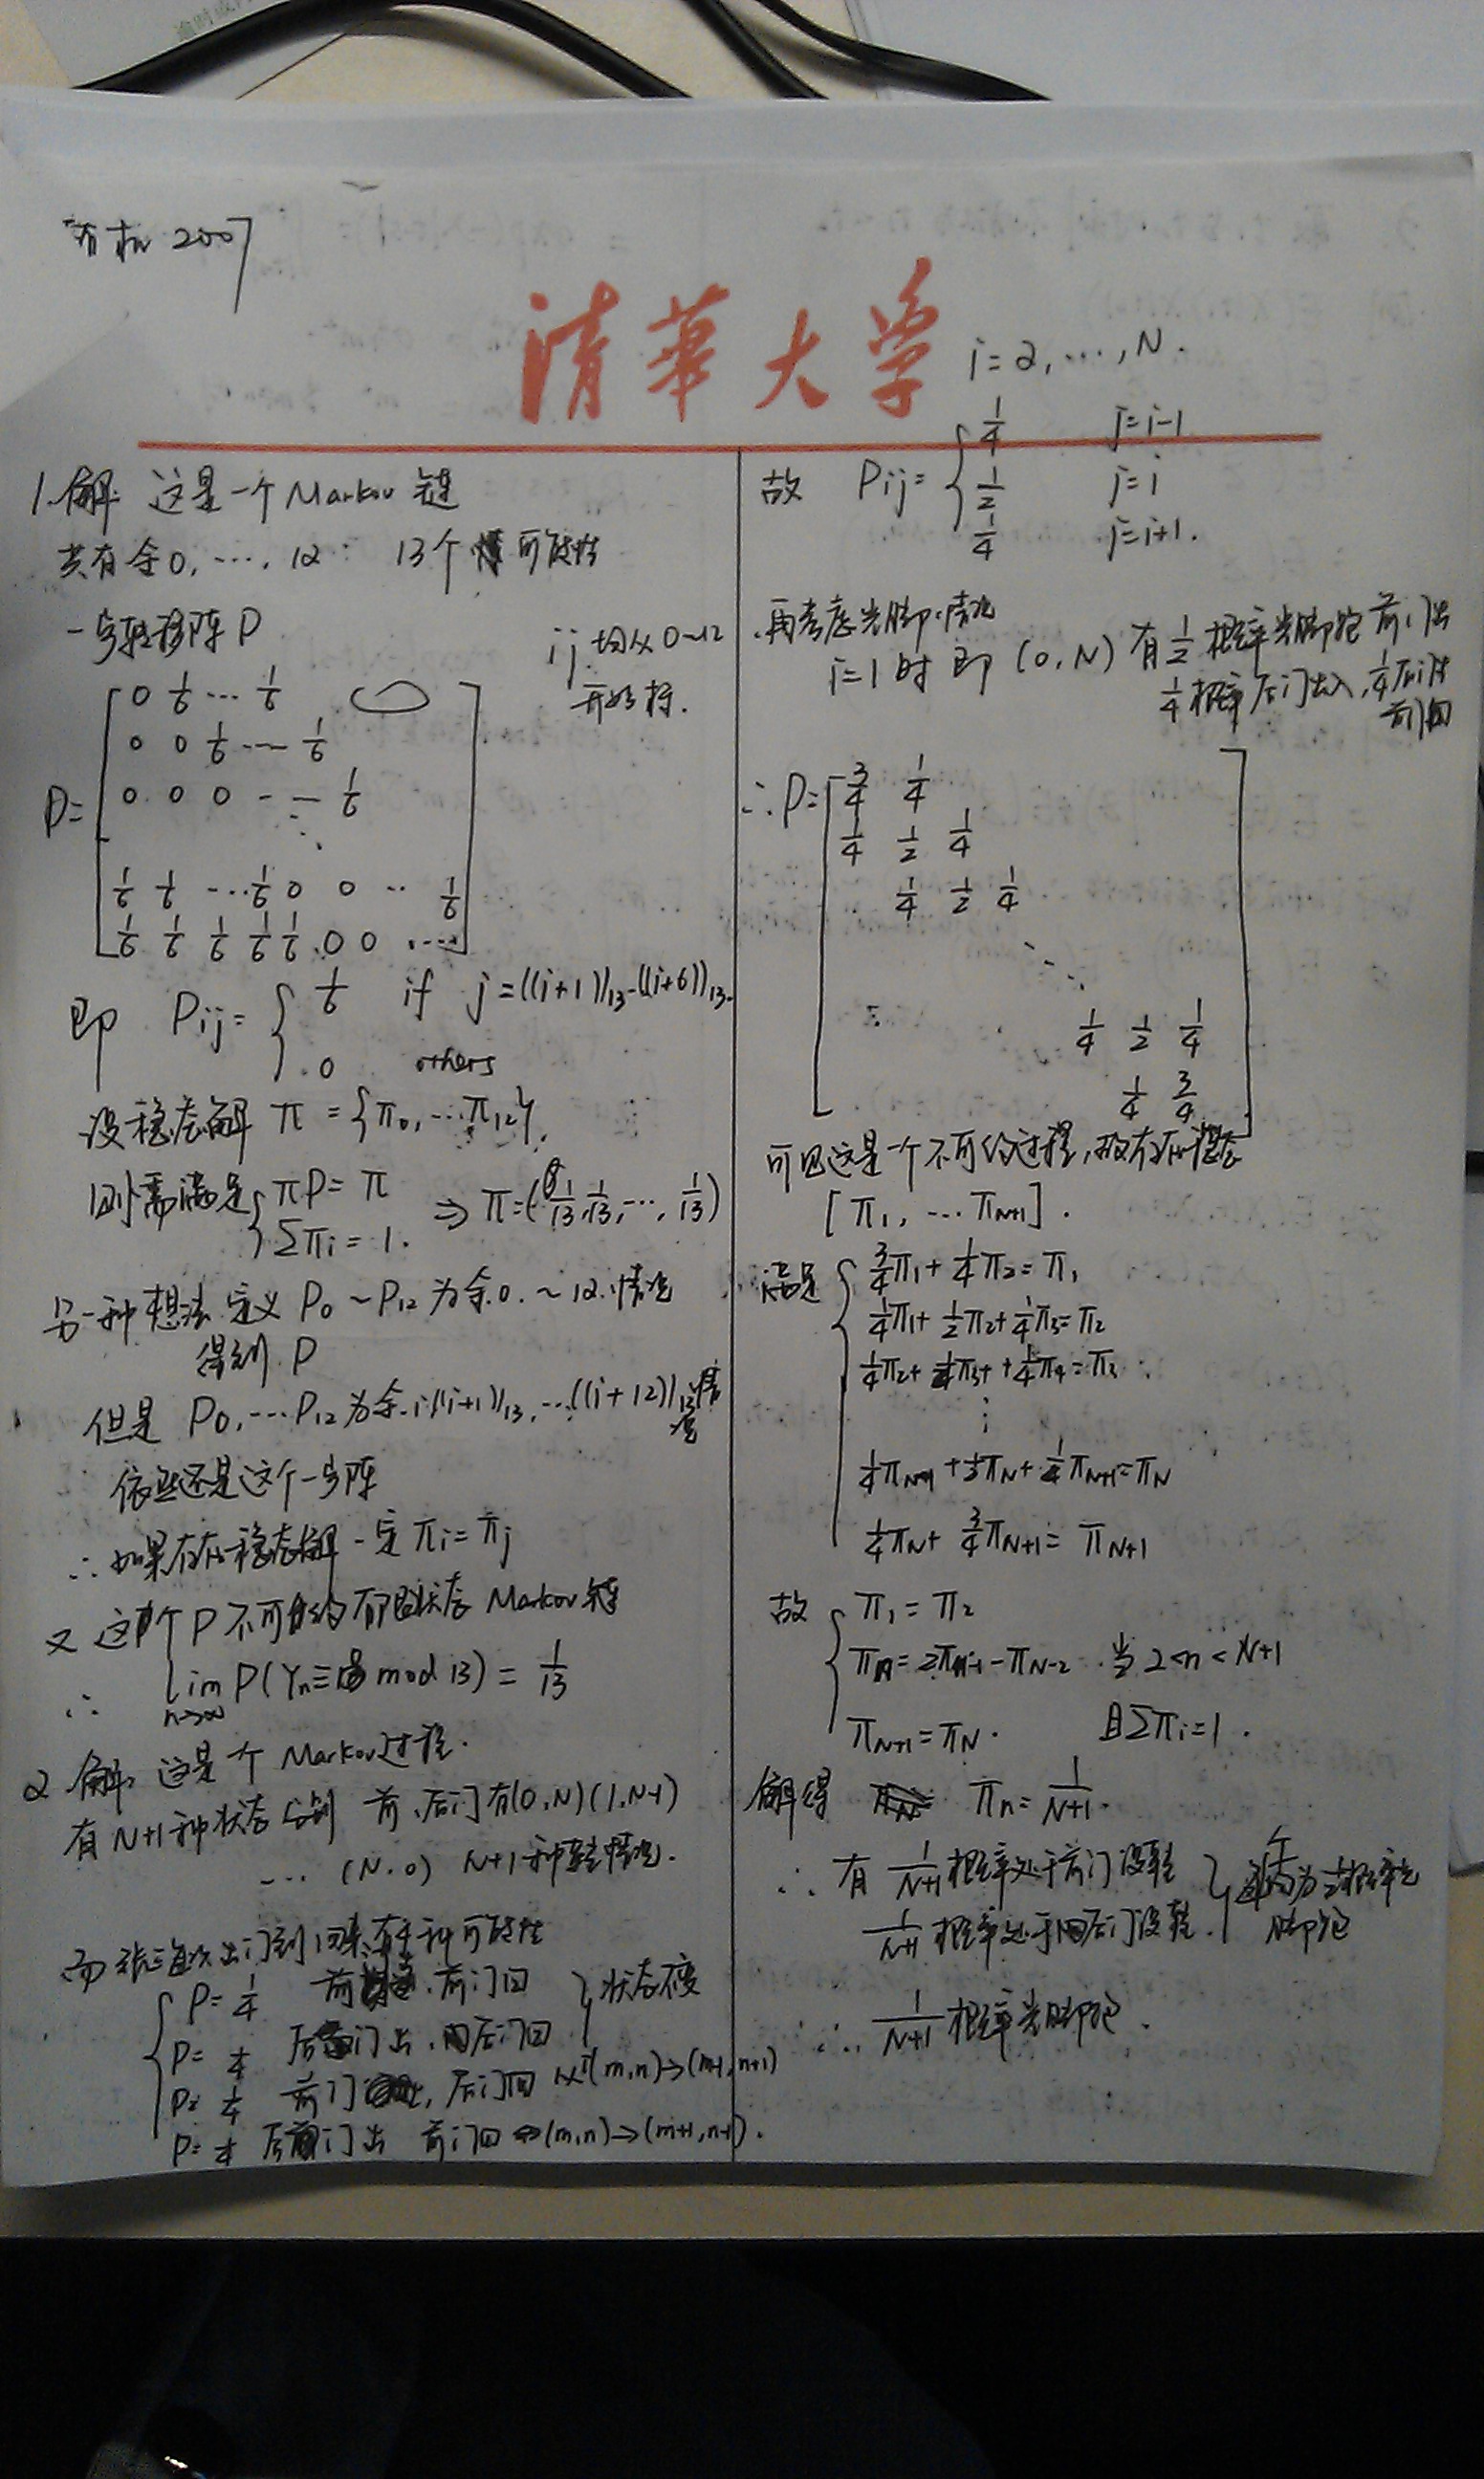 2007
清華大学
1.解: 这是一个 Markov 链
共有余0, …, 12 13个可能性
一步转移阵 P
i j 均从 0~12
开始标.
P= [ 0 1/6 … 1/6
0 0 1/6 … 1/6
0 0 0 - - 1/6
⋱
1/6 1/6 … 1/6 0 0 … 1/6
1/6 1/6 1/6 1/6 1/6 0 0 … ]
即 Pij= { 1/6 if j=((i+1))13-((i+6))13.
0 others
设稳态解 π = {π0, …π12}.
则需满足 { πP = π
Σπi = 1. ⇒ π=(1/13, 1/13, …, 1/13)
另一种想法 定义 P0 ~ P12 为余 0 ~ 12 情况
得到 P
但是 P0, …P12 为余 i, ((i+1))13, …((i+12))13 情况
依然还是这个一步阵
∴ 如果存在稳态解 一定 πi = πj
又 这个 P 不可约 有限状态 Markov 链
∴ lim n→∞ P(Yn≡ mod 13) = 1/13
2 解: 这是个 Markov过程.
有 N+1种状态 分别 前、后门有(0,N)(1,N-1)
… (N,0) N+1种鞋情况.
而张三每次出门到回来有4种可能性
{ P= 1/4 前门回 } 状态不变
P= 1/4 后门出, 后门回
P= 1/4 前门出, 后门回 (m,n)→(m-1,n+1)
P= 1/4 后门出 前门回 ⇔(m,n)→(m+1,n-1).
i=2, …, N.
故 Pij= { 1/4 j=i-1
1/2 j=i
1/4 j=i+1.
再考虑光脚情况
i=1 时 即 (0,N) 有 1/2 概率光脚跑 前门出
1/4 概率 后门出入, 1/4 后门出
前门回
∴P= [ 3/4 1/4
1/4 1/2 1/4
1/4 1/2 1/4
⋱
1/4 1/2 1/4
1/4 3/4 ]
可见这是一个不可约过程, 故存在稳态
[π1, … πN+1].
满足 { 3/4π1 + 1/4π2 = π1
1/4π1 + 1/2π2 + 1/4π3 = π2
1/4π2 + 1/2π3 + 1/4π4 = π3
⋮
1/4πN-1 + 1/2πN + 1/4πN+1 = πN
1/4πN + 3/4πN+1 = πN+1
故 { π1 = π2
πn = 2πn-1 - πN-2 当 2<n<N+1
πN+1 = πN. 且Σπi=1.
解得 πn = 1/N+1.
∴ 有 1/N+1 概率处于前门没鞋
1/N+1 概率处于后门没鞋. } 1/2概率光
脚跑
∴ 1/N+1 概率光脚跑.